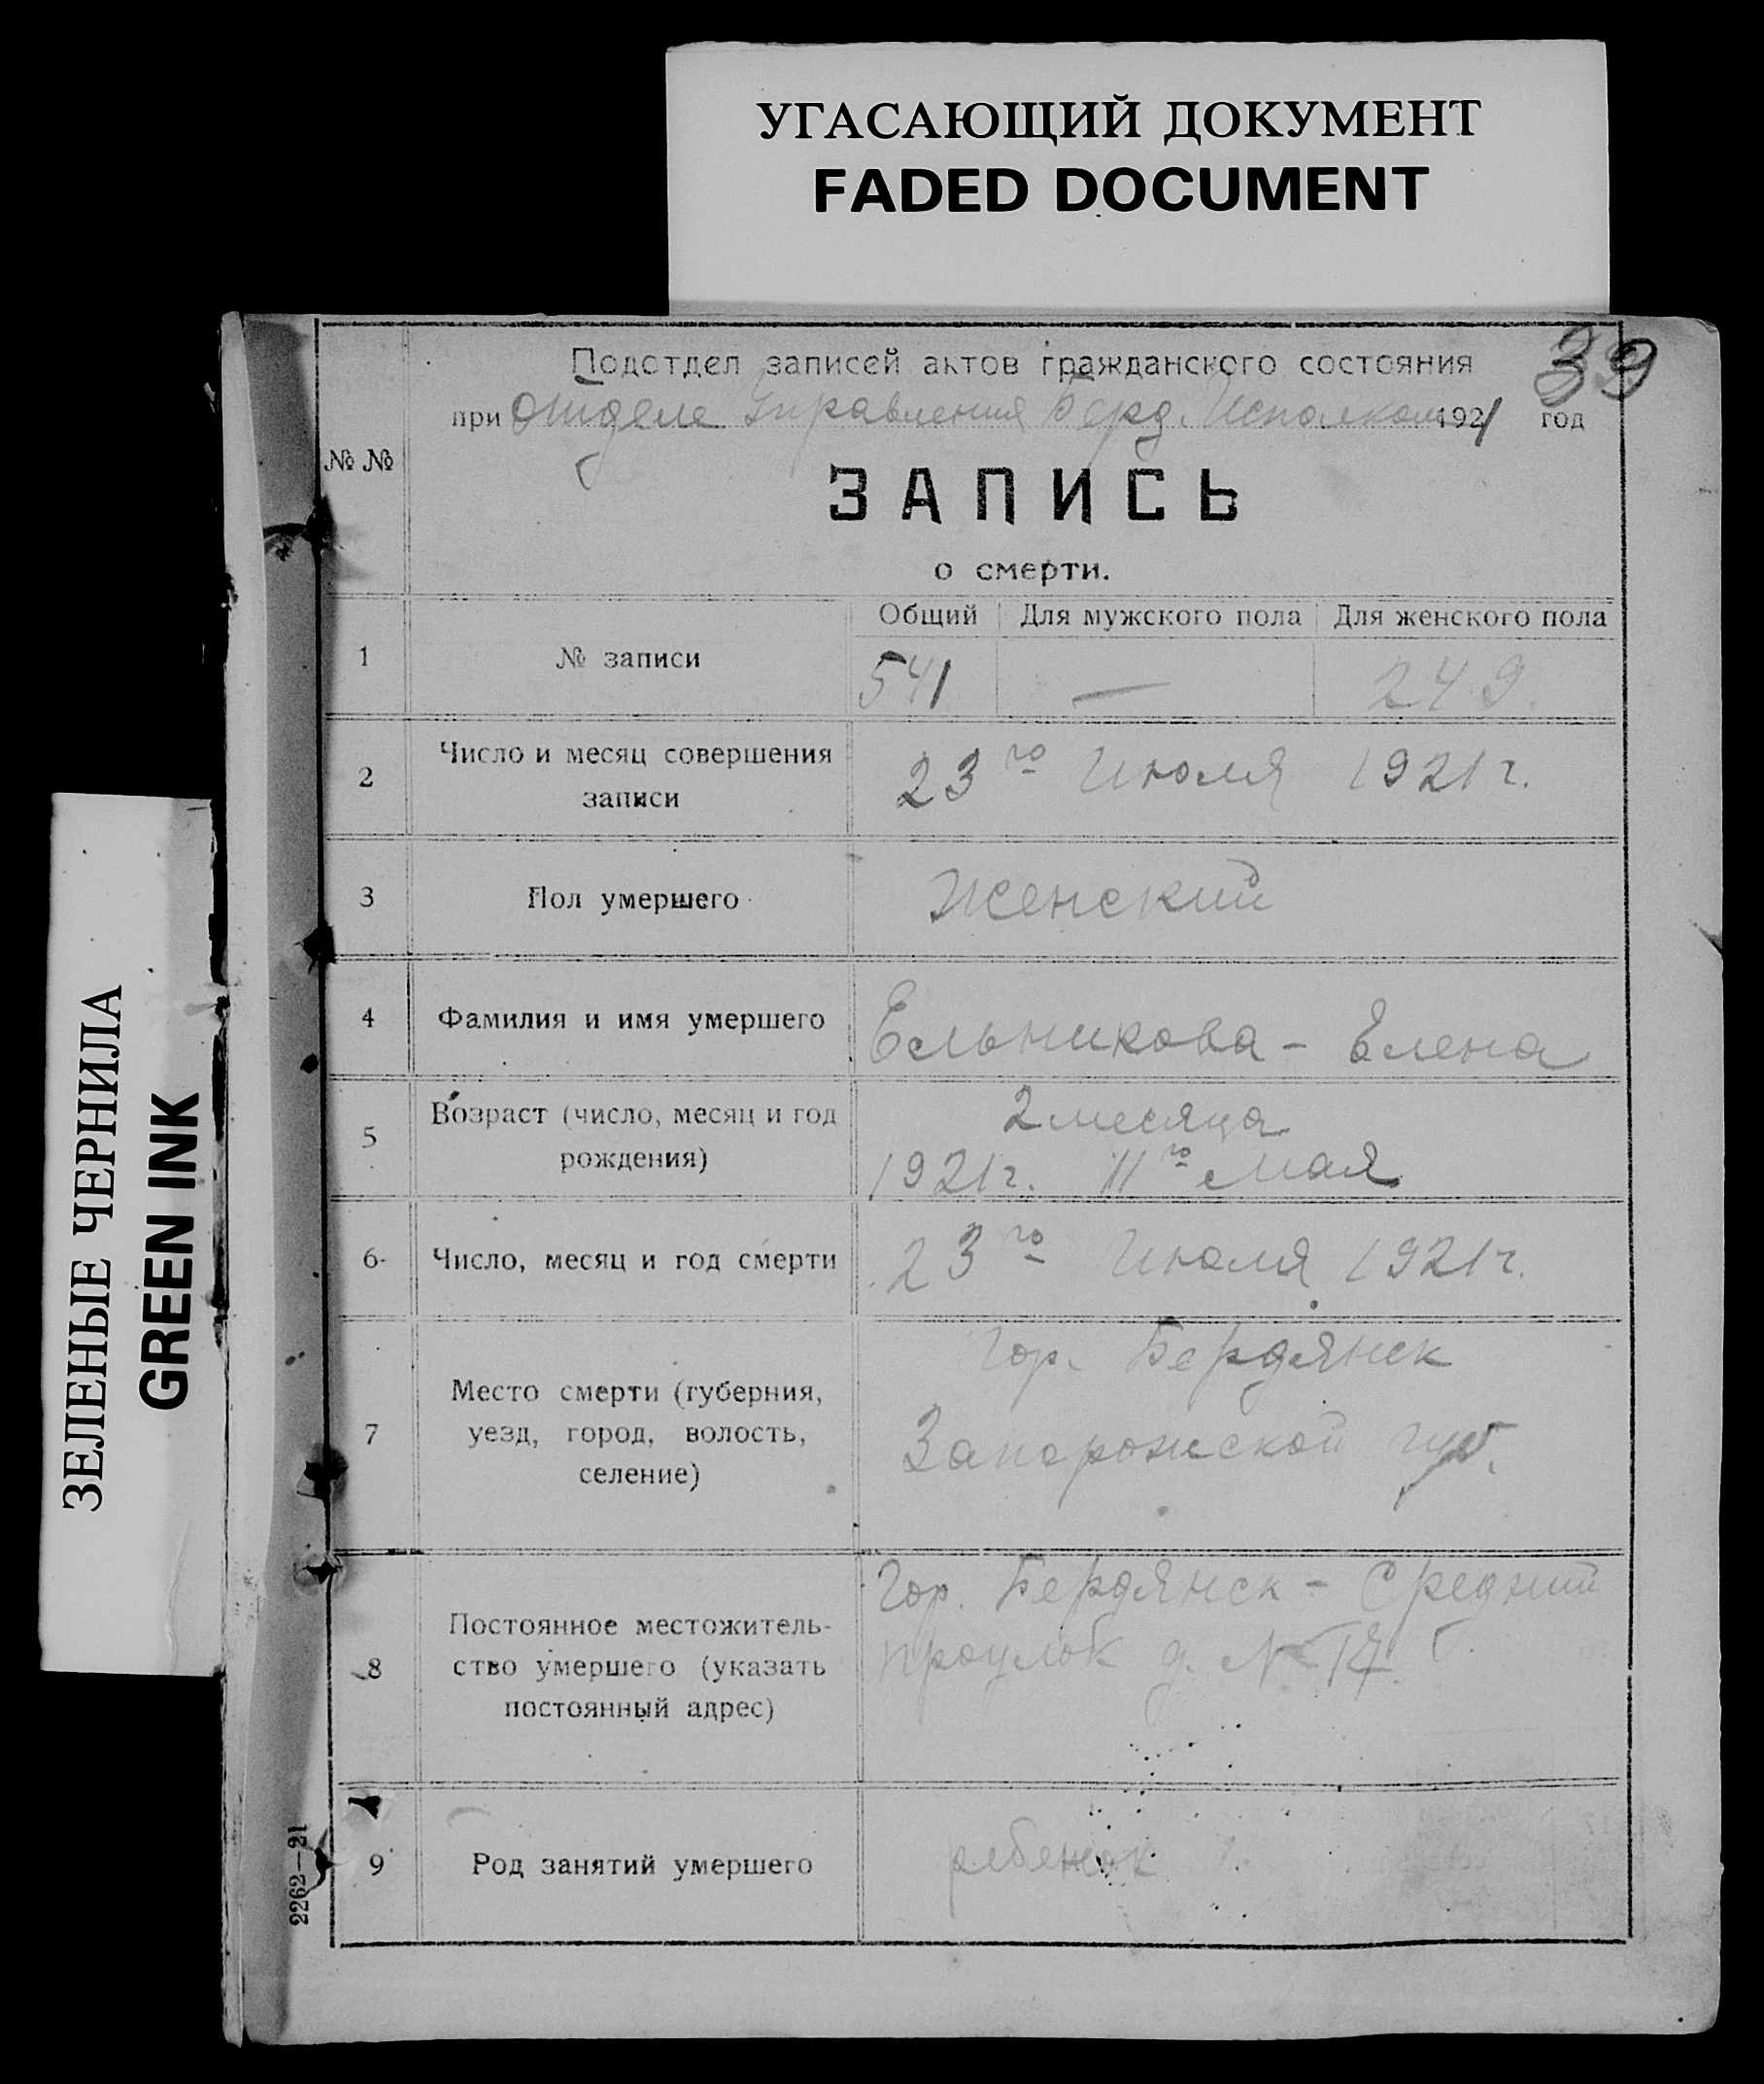 УГАСАЮЩИЙ ДОКУМЕНТ
FADED DOCUMENT
ЗЕЛЕНЫЕ ЧЕРНИЛА
GREEN INK
39
Подотдел записей актов гражданского состояния
при Отделе Управления Берд. Исполкома 1921 год
№ №
ЗАПИСЬ
о смерти.
Общий Для мужского пола Для женского пола
1 № записи 541 — 249.
2 Число и месяц совершения записи 23го Июля 1921 г.
3 Пол умершего Женский
4 Фамилия и имя умершего Ельникова - Елена
5 Возраст (число, месяц и год рождения) 2 месяца
1921 г. 11го Мая
6 Число, месяц и год смерти 23го Июля 1921 г.
7 Место смерти (губерния,
уезд, город, волость,
селение)
Гор. Бердянск
Запорожской губ.
8 Постоянное местожитель-
ство умершего (указать
постоянный адрес)
Гор. Бердянск - Средний
проулок д. №
9 Род занятий умершего ребенок
2262—21